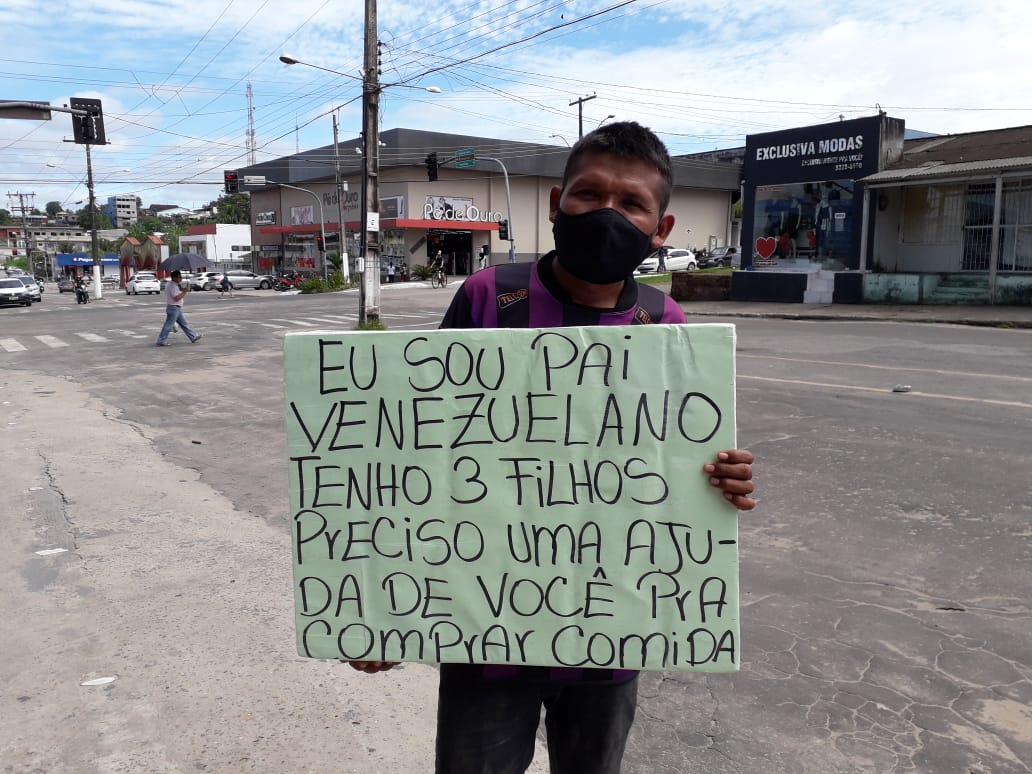 EXCLUSIVA MODAS
EXCLUSIVAMENTE PRA VOCÊ!
Pé de Ouro
Pé de Ouro
EU SOU PAI
VENEZUELANO
TENHO 3 FILHOS
PRECISO UMA AJU-
DA DE VOCÊ PRA
COMPRAR COMIDA